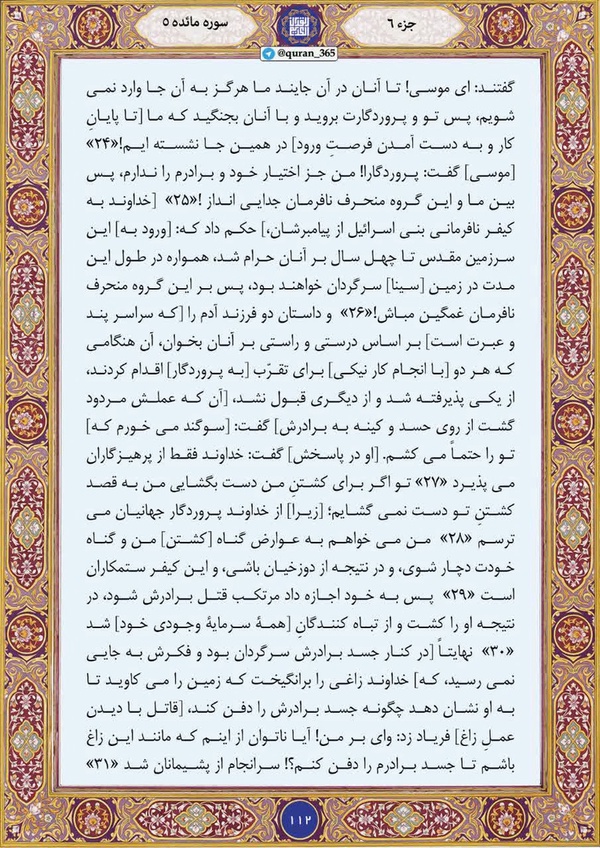 جزء ۶
سوره مائده ۵
@quran_365
گفتند: ای موسی! تا آنان در آن جایند ما هرگز به آن جا وارد نمی
شویم، پس تو و پروردگارت بروید و با آنان بجنگید که ما [تا پایانِ
کار و به دست آمدن فرصتِ ورود] در همین جا نشسته ایم!«۲۴»
[موسی] گفت: پروردگارا! من جز اختیار خود و برادرم را ندارم، پس
بین ما و این گروه منحرف نافرمان جدایی انداز !«۲۵» [خداوند به
کیفر نافرمانی بنی اسرائیل از پیامبرشان،] حکم داد که: [ورود به] این
سرزمین مقدس تا چهل سال بر آنان حرام شد، همواره در طول این
مدت در زمین [سینا] سرگردان خواهند بود، پس بر این گروه منحرف
نافرمان غمگین مباش!«۲۶» و داستان دو فرزند آدم را [که سراسر پند
و عبرت است] بر اساس درستی و راستی بر آنان بخوان، آن هنگامی
که هر دو [با انجام کار نیکی] برای تقرّب [به پروردگار] اقدام کردند،
از یکی پذیرفته شد و از دیگری قبول نشد، [آن که عملش مردود
گشت از روی حسد و کینه به برادرش] گفت: [سوگند می خورم که]
تو را حتماً می کشم. [او در پاسخش] گفت: خداوند فقط از پرهیزگاران
می پذیرد «۲۷» تو اگر برای کشتنِ من دست بگشایی من به قصد
کشتنِ تو دست نمی گشایم؛ [زیرا] از خداوند پروردگار جهانیان می
ترسم «۲۸» من می خواهم به عوارض گناه [کشتن] من و گناه
خودت دچار شوی، و در نتیجه از دوزخیان باشی، و این کیفر ستمکاران
است «۲۹» پس به خود اجازه داد مرتکب قتل برادرش شود، در
نتیجه او را کشت و از تباه کنندگانِ [همهٔ سرمایهٔ وجودی خود] شد
«۳۰» نهایتاً [در کنار جسد برادرش سرگردان بود و فکرش به جایی
نمی رسید، که] خداوند زاغی را برانگیخت که زمین را می کاوید تا
به او نشان دهد چگونه جسد برادرش را دفن کند، [قاتل با دیدن
عملِ زاغ] فریاد زد: وای بر من! آیا ناتوان از اینم که مانند این زاغ
باشم تا جسد برادرم را دفن کنم؟! سرانجام از پشیمانان شد «۳۱»
۱۱۲